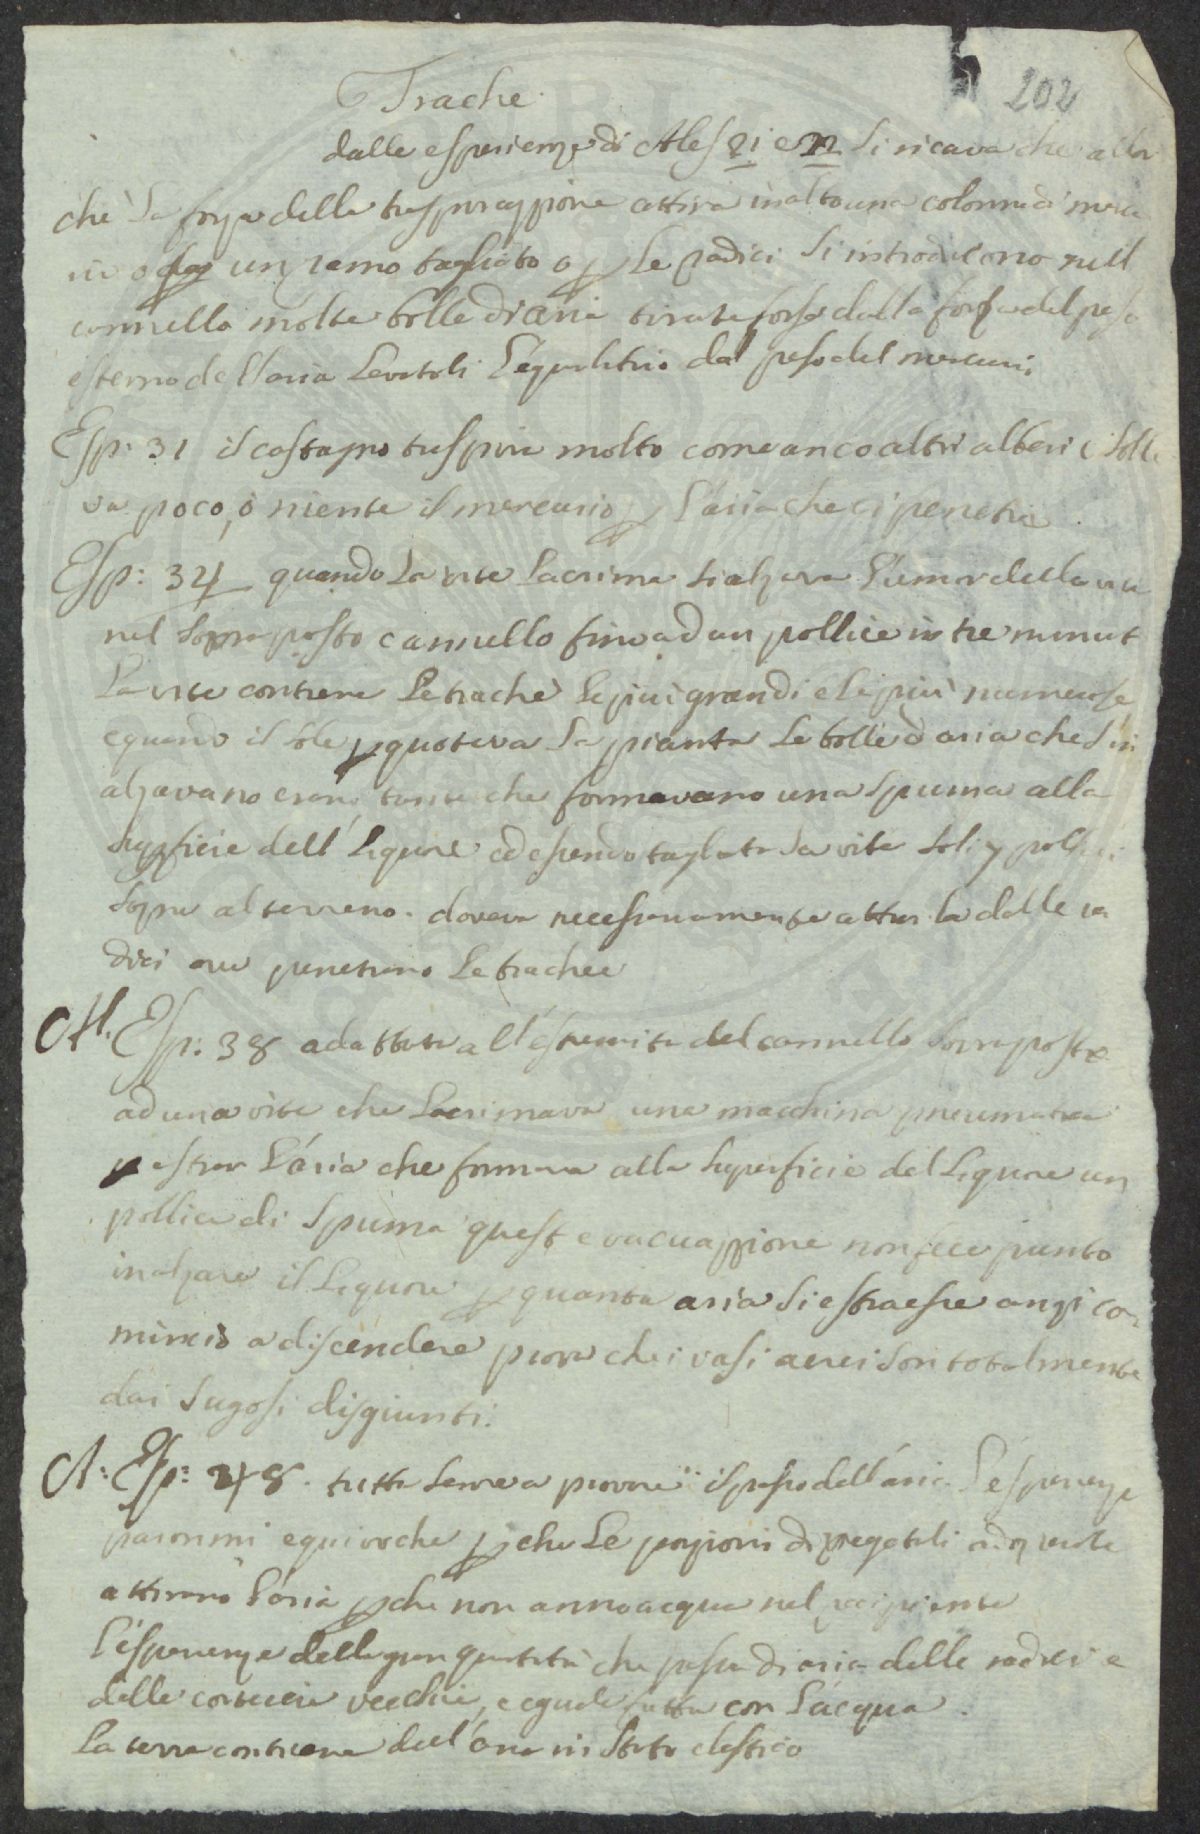 202
Trache
dalle esperienze di Ales 21 e 22 si ricava che allor
chè la forza della traspirazzione attira in alto una colonna di mercu
rio o un ramo tagliato o p le radici si introducono nell
cannello molte bolle d'aria tirate forse dalla forza del peso
esterno dell'aria levatoli l'equilibrio dal peso del mercuri
Esp: 31 il castagno traspira molto come anco altri alberi e solle
va poco, ò niente il mercurio p l'aria che ci penetra
Esp: 34 quando la vite lacrima si alzava l'umor della vite
nel sopraposto cannello fino ad un pollice in tre minut
la vite contiene le trachè le piui grandi e le piui numerose
e quando il sole pquoteva la pianta le bolle d'aria che s'in
alzavano erano tante che formavano una spuma alla
supficie dell'liquore ed essendo tagliata la vite soli 7 pollici
sopra al terreno. doveva necessariamente attrarla dalle ra
dici ove penetrano le trachee
A. Esp: 38 adattata all'estremità del cannello sovraposto
ad una vite che lacrimava una macchina pneumatica
p estrar l'aria che formava alla superficie del liquore un
pollice di spuma quest evacuazzione non fece punto
inalzare il liquore p quanta aria si estraesse anzi co-
minciò a discendere prova che i vasi aerei son totalmente
dai sugosi disgiunti.
A: Esp: 48. tutta serve a provare il passo dell'aria l'esperienze
paronmi equivoche pche le porzioni di vegetali adoprate
attirano l'aria pche non anno acqua nel recipiente
l'esperienze della gran quantità che passa di aria dalle radici e
dalle corteccie vecchie, e eguale fatta con l'acqua.
la terra contiene dell'aria in stato elastico